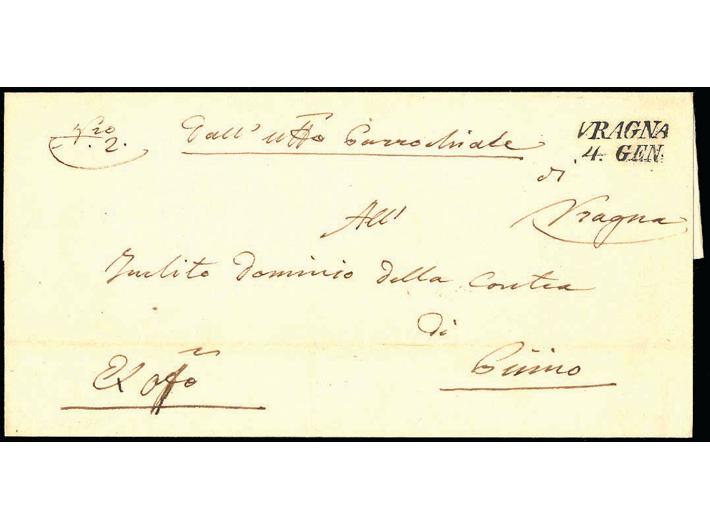 Nro 2.
Dall' uffo Parrochiale
VRAGNA
4. GEN.
di
Vragna
All'
Inclito Dominio della Contea
di
Pisino
Ex offo